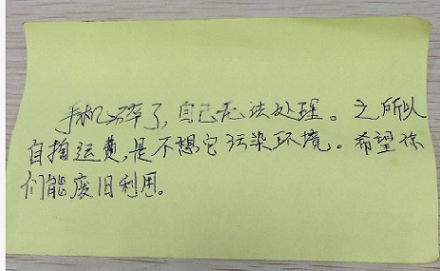 手机碎了,自己无法处理。之所以
自掏运费,是不想它污染环境。希望你
们能废旧利用。